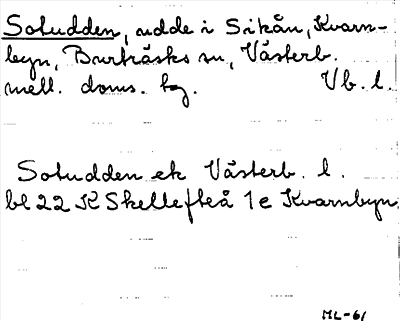 Sotudden, udde i Sikån, Kvarn-
byn, Burträsks sn, Västerb.
mell. doms. hg. Vb. l.
Sotudden ek Västerb. l.
bl 22 K Skellefteå 1e Kvarnbyn
ML-61